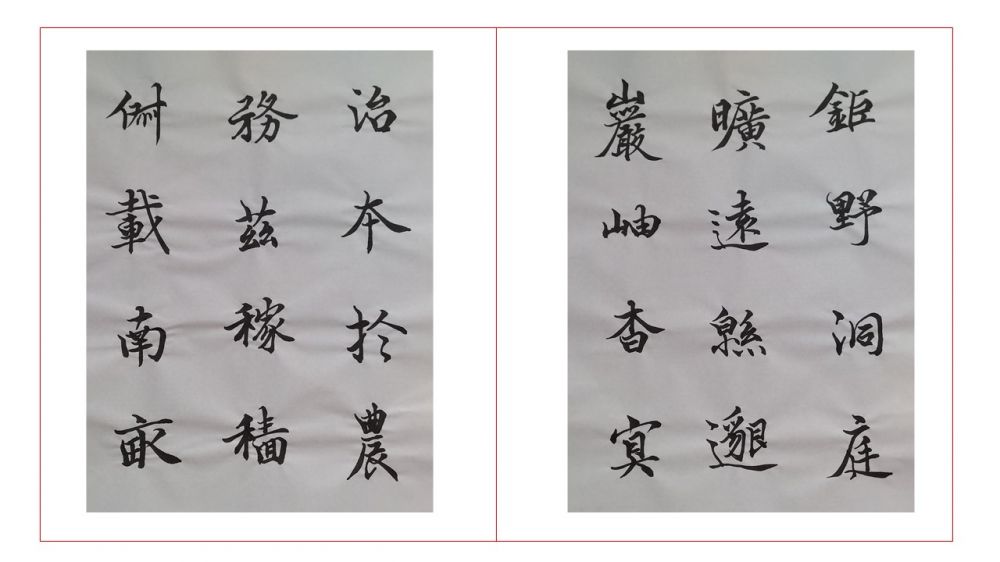 鉅野洞庭
曠遠緜邈
巖岫杳㝠
治本扵農
務茲稼穡
俶載南畝